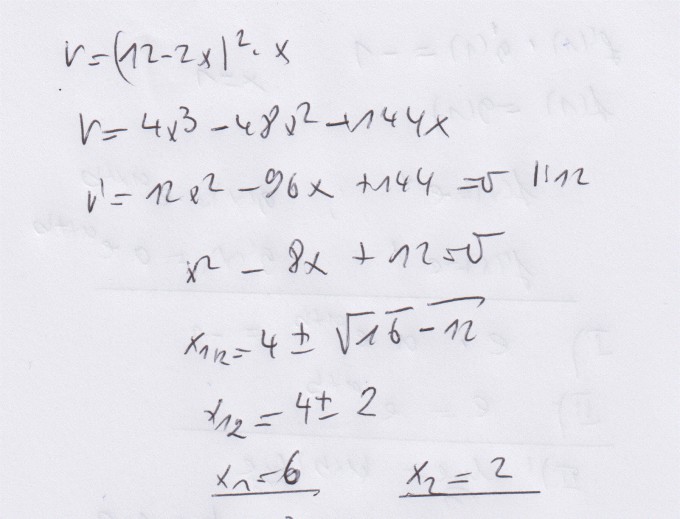 V=(12-2x)²·x
V=4x³-48x²+144x
V'=12x²-96x+144=0 |:12
x²-8x+12=0
x₁/₂=4±√16-12
x₁₂=4±2
x₁=6 x₂=2